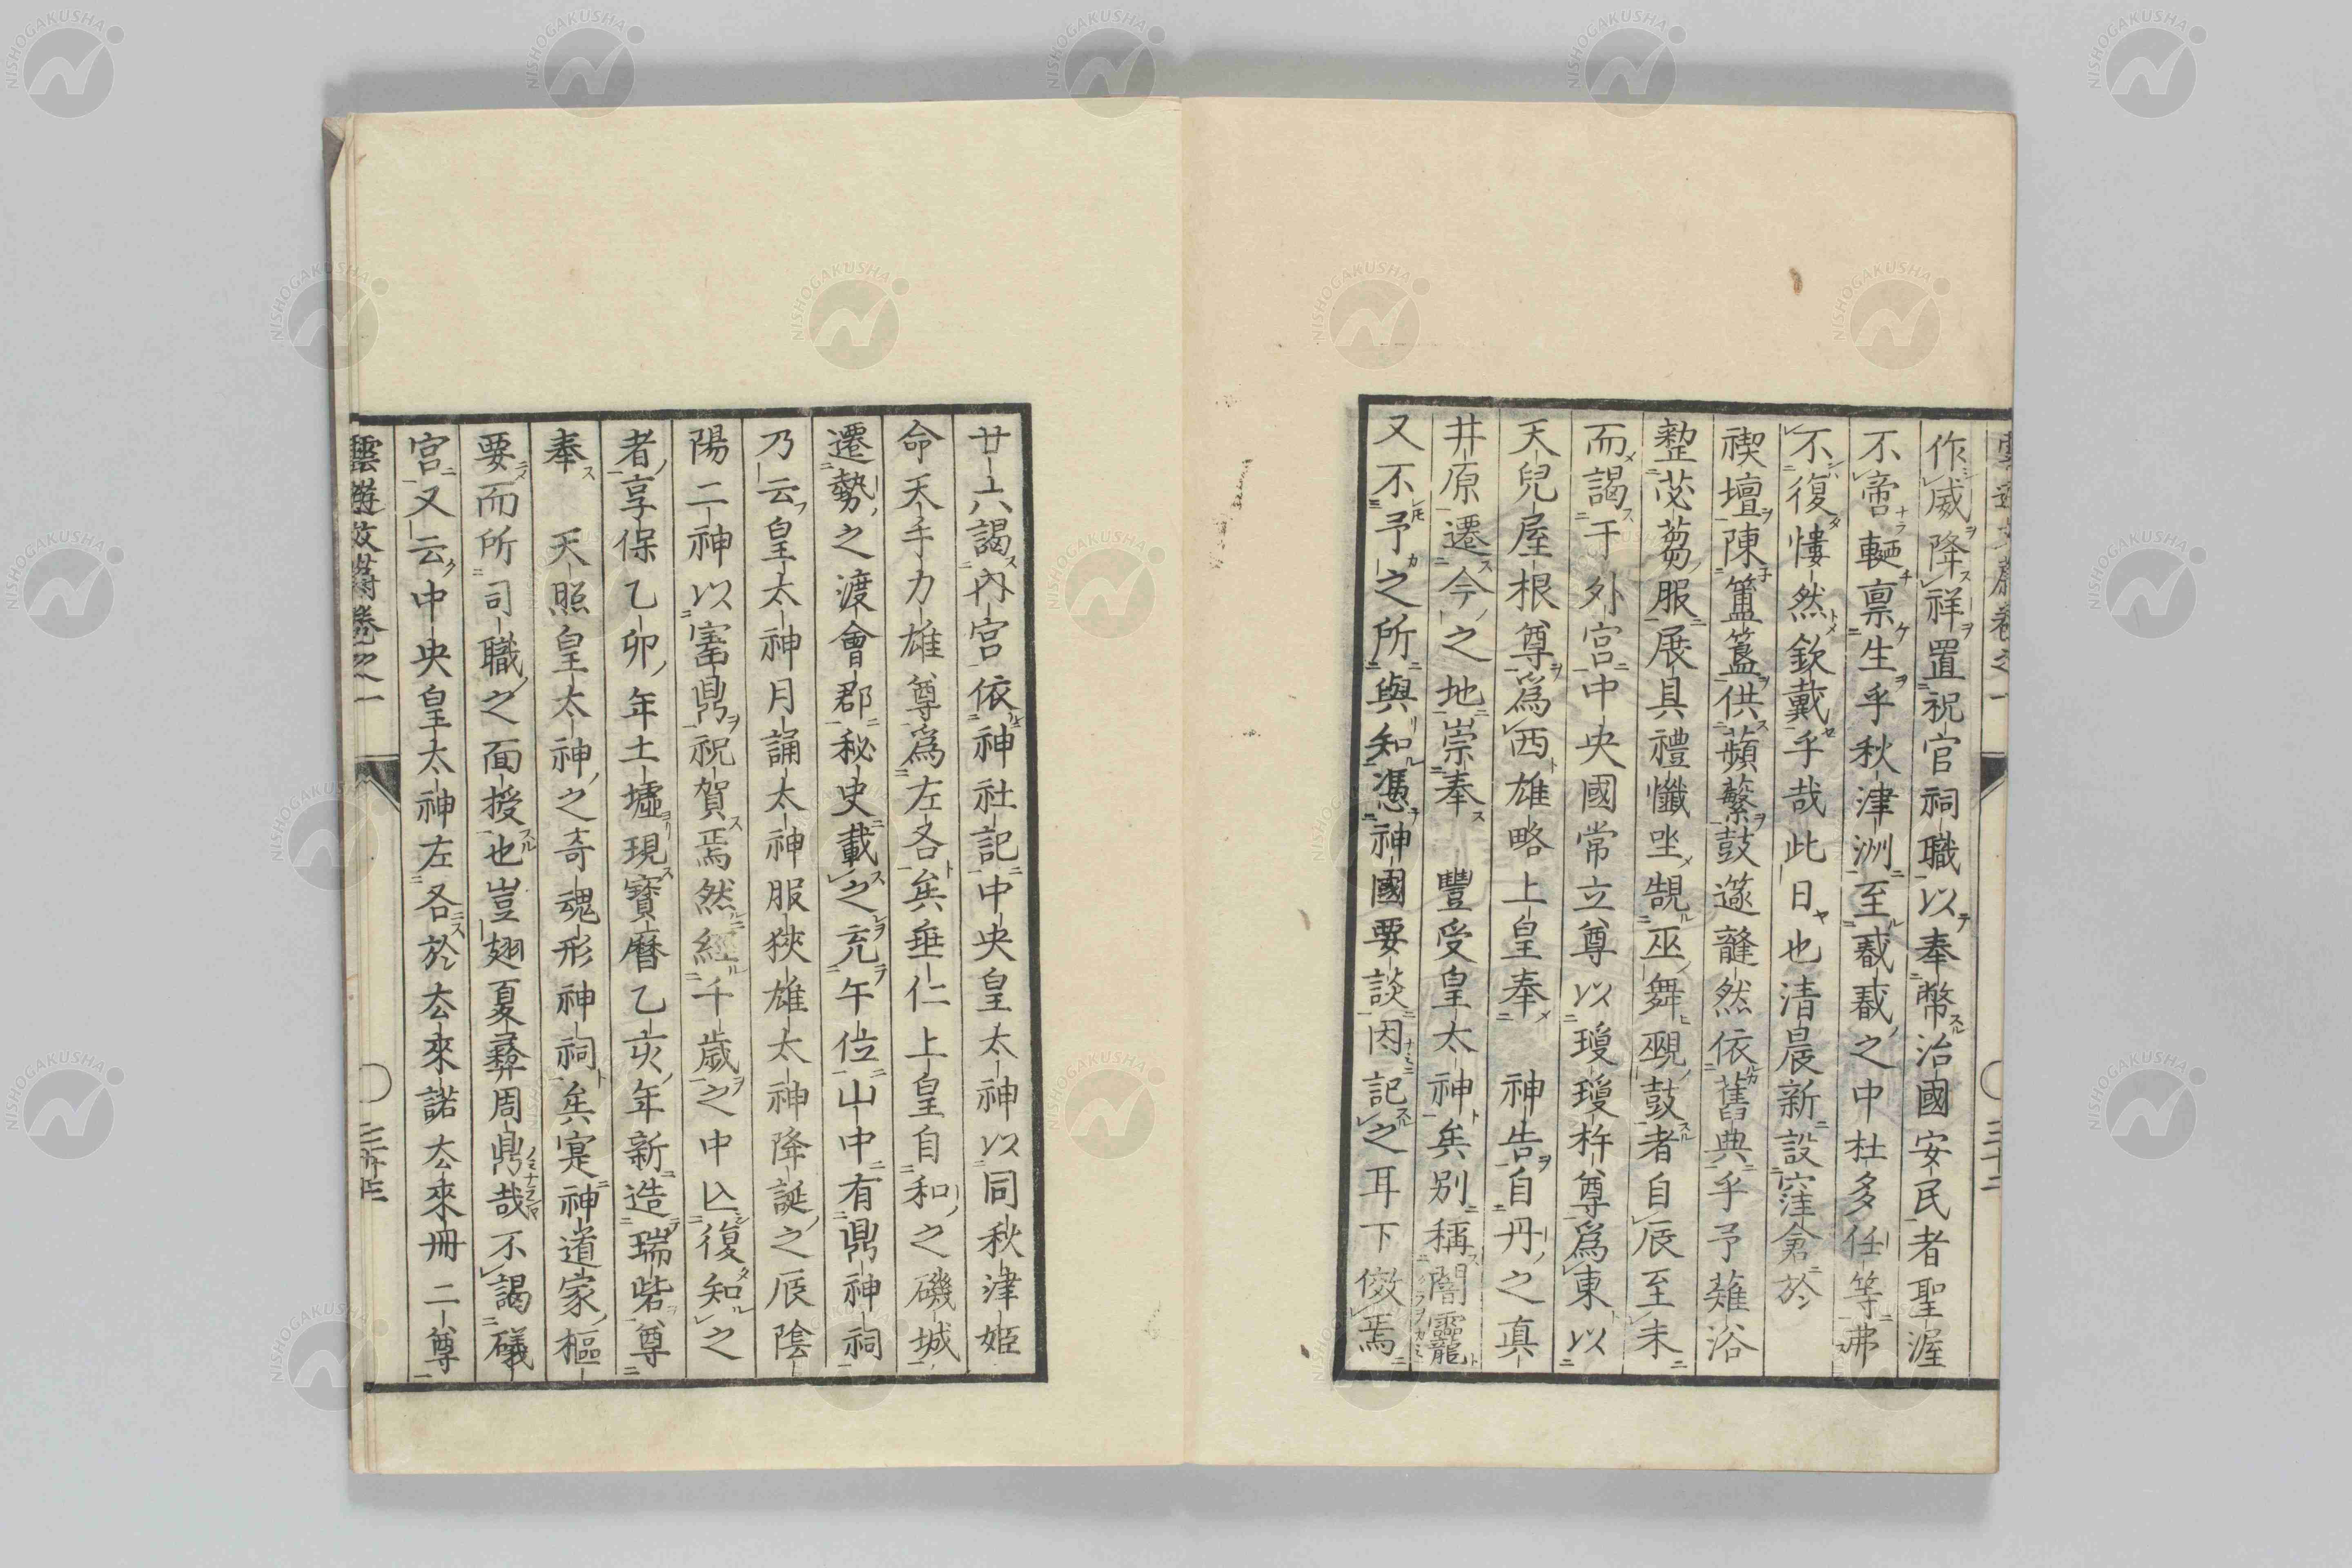 作威降祥置祝官祠職以奉幣治國安民者聖渥
不啻輀禀生乎秋津洲至
之中杜多任等沸
不復悽然欽戴乎哉此日也清晨新設窪倉於
禊壇陳簠簋供蘋蘩鼓
然依舊典乎予薙浴
整苾蒭服展具禮懺坐覩巫舞覡鼓者自辰至未
而謁于外宮中央國常立尊以瓊瓊杵尊爲東以
天兒屋根尊爲西雄略上皇奉 神告自丹之真
井原遷今之地崇奉 豐受皇太神矣別稱闇靇
又不予之所與知憑神國要談因記之耳下倣焉
廿六謁內宮依神社記中央皇太神以同秋津姬
命天手力雄尊爲左各矣垂仁上皇自和之磯城
遷勢之渡會郡秘史載之充午位山中有鼎神祠
乃云皇太神月誦太神服狹雄太神降誕之辰陰
陽二神以
鼎祝賀焉然經千歲之中亾復知之
者享保乙卯年土墟現寶曆乙亥年新造瑞砦尊
奉 天照皇太神之奇魂形神祠矣寔神道家樞
要而所司職之面授也豈翅夏彝周鼎哉不謁礒
宮又云中央皇太神左各於厺來諾厺來冊二尊
雲遊文蔚卷之一
三十二